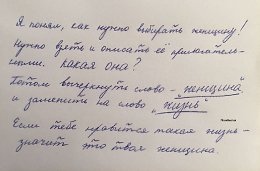 Я понял, как нужно выбирать женщину!
Нужно взять и описать её прилагатель-
ными. Какая она?
Потом вычеркнуть слово - "женщина"
и заменить на слово "жизнь"
Если тебе нравится такая жизнь -
значит это твоя женщина.